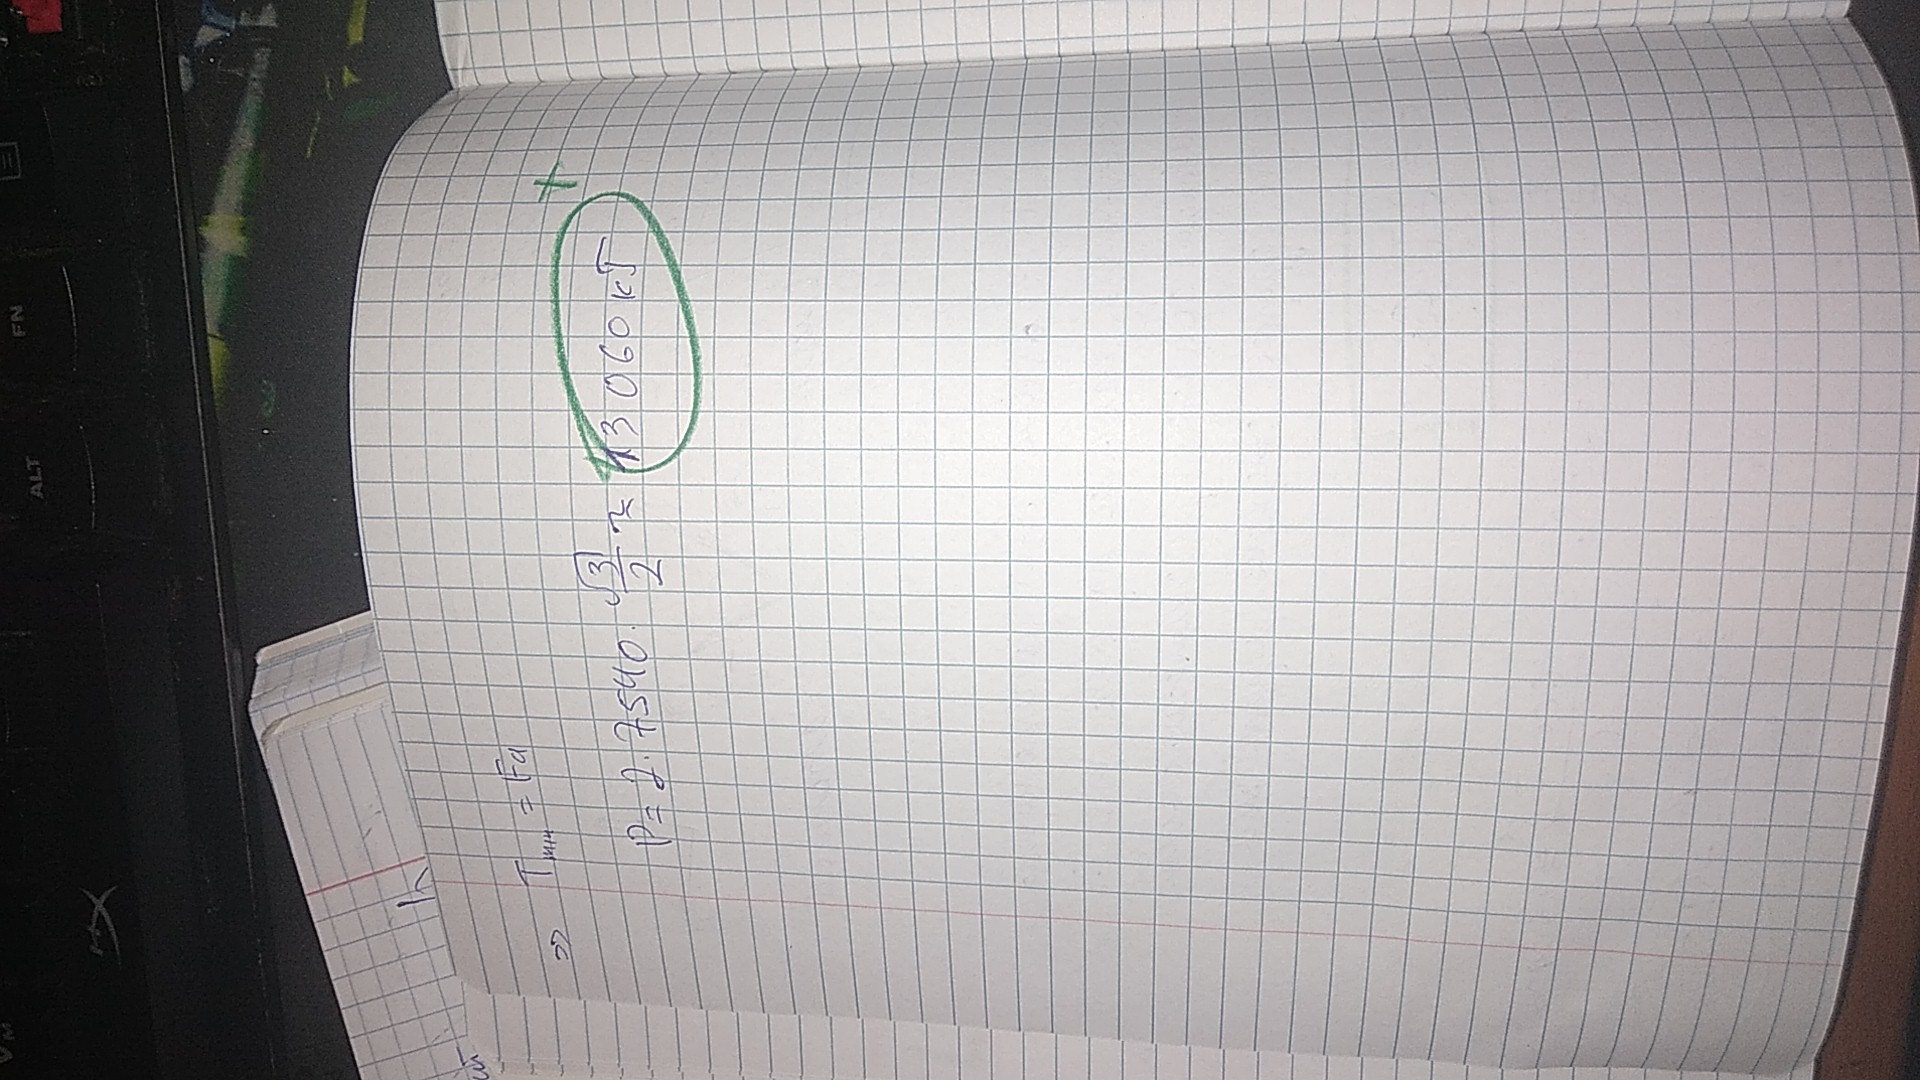 VM
ALT
FN
HX
h
=> Tmin = Fa
P = 2·7540·√3/2 ≈ 13 060 кГ
+